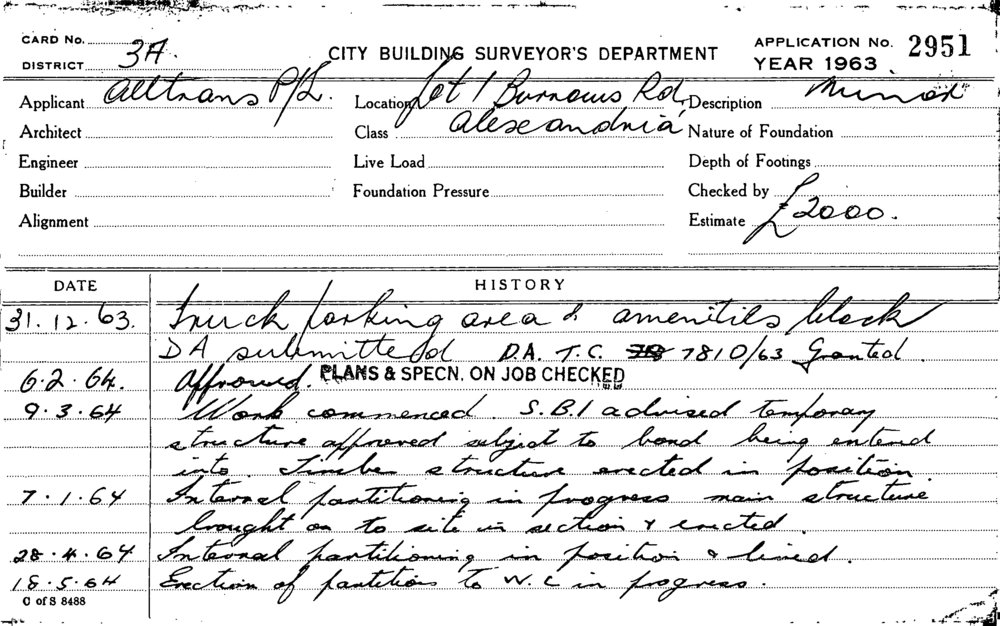 CARD No.
DISTRICT 3A.
CITY BUILDING SURVEYOR'S DEPARTMENT
APPLICATION No. 2951
YEAR 1963
Applicant Alltrans P/L.
Location Lot 1 Burrows Rd,
Description Minor
Architect
Class Alexandria
Nature of Foundation
Engineer
Live Load
Depth of Footings
Builder
Foundation Pressure
Checked by
Alignment
Estimate £2000.
DATE
HISTORY
31.12.63. Truck parking area & amenities block
DA submitted D.A. T.C. 7810/63 Granted.
6.2.64. Approved. PLANS & SPECN. ON JOB CHECKED
9.3.64 Work commenced. S.B.I advised temporary
structure approved subject to bond being entered
into. Timber structure erected in position.
7.1.64 Internal partitioning in progress main structure
brought on to site in section & erected.
28.4.64 Internal partitioning in position & lined.
18.5.64 Erection of partitions to W.C in progress.
C of S 8488